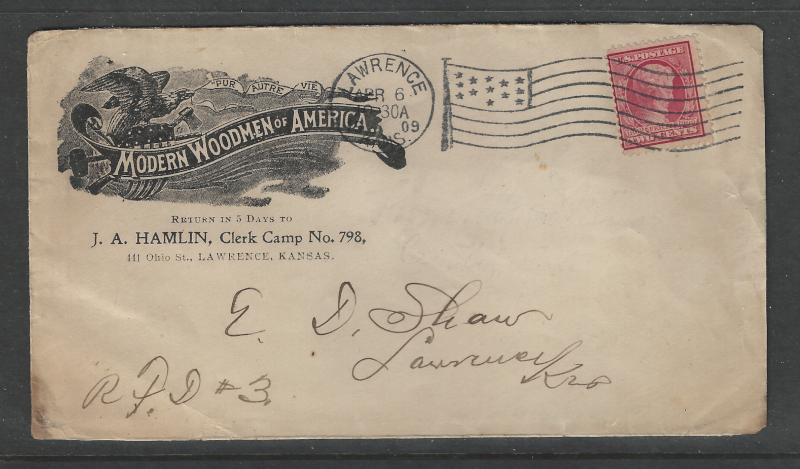 PUR AUTRE VIE
MODERN WOODMEN OF AMERICA.
RETURN IN 5 DAYS TO
J. A. HAMLIN, Clerk Camp No. 798,
441 Ohio St., LAWRENCE, KANSAS.
LAWRENCE
APR 6
30A
09
KAS.
U.S. POSTAGE
TWO CENTS
E. D. Shaw
Lawrence
Kas
R F D # 3.